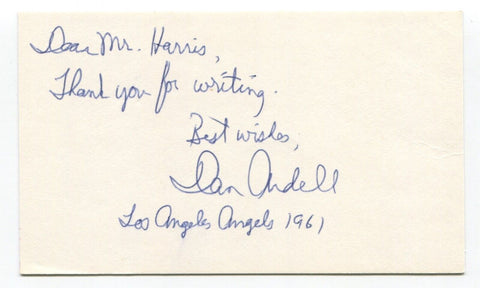 Dear Mr. Harris,
Thank you for writing.
Best wishes,
Dan Ardell
Los Angeles Angels 1961